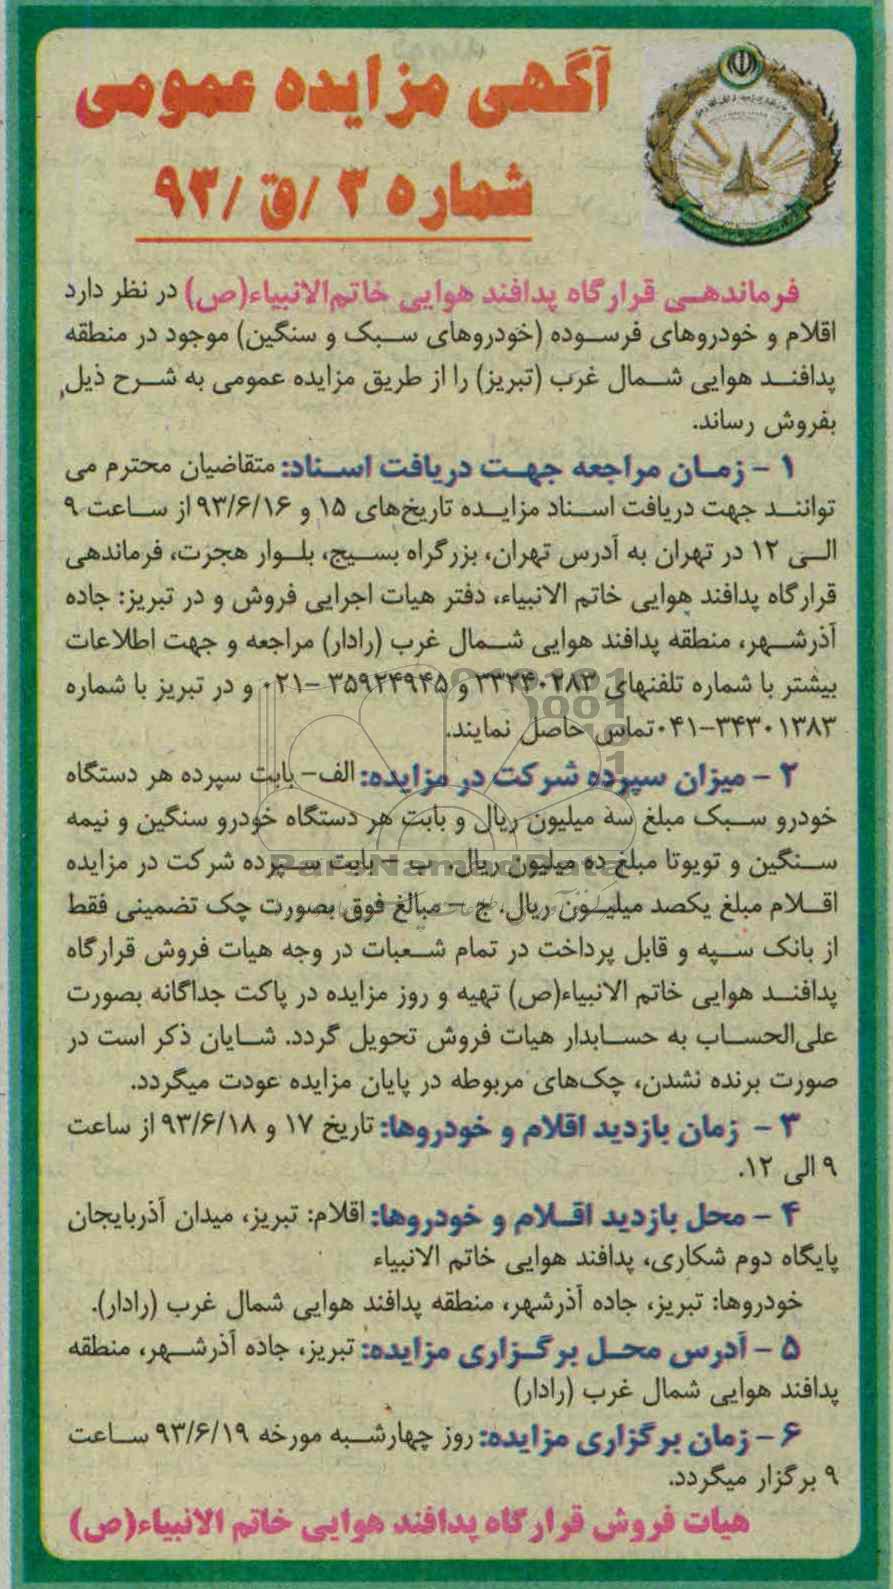 آگهی مزایده عمومی
شماره ۳ /ق /۹۳
فرماندهی قرارگاه پدافند هوایی خاتم‌الانبیاء(ص) در نظر دارد
اقلام و خودروهای فرسوده (خودروهای سبک و سنگین) موجود در منطقه
پدافند هوایی شمال غرب (تبریز) را از طریق مزایده عمومی به شرح ذیل
بفروش رساند.
۱ - زمان مراجعه جهت دریافت اسناد: متقاضیان محترم می
توانند جهت دریافت اسناد مزایده تاریخ‌های ۱۵ و ۹۳/۶/۱۶ از ساعت ۹
الی ۱۲ در تهران به آدرس تهران، بزرگراه بسیج، بلوار هجرت، فرماندهی
قرارگاه پدافند هوایی خاتم الانبیاء، دفتر هیات اجرایی فروش و در تبریز: جاده
آذرشهر، منطقه پدافند هوایی شمال غرب (رادار) مراجعه و جهت اطلاعات
بیشتر با شماره تلفنهای ۳۳۲۴۰۲۸۳ و ۳۵۹۲۴۹۴۵ -۰۲۱ و در تبریز با شماره
۳۴۳۰۱۳۸۳-۰۴۱ تماس حاصل نمایند.
۲ - میزان سپرده شرکت در مزایده: الف- بابت سپرده هر دستگاه
خودرو سبک مبلغ سه میلیون ریال و بابت هر دستگاه خودرو سنگین و نیمه
سنگین و تویوتا مبلغ ده میلیون ریال. ب - بابت سپرده شرکت در مزایده
اقلام مبلغ یکصد میلیون ریال. ج - مبالغ فوق بصورت چک تضمینی فقط
از بانک سپه و قابل پرداخت در تمام شعبات در وجه هیات فروش قرارگاه
پدافند هوایی خاتم الانبیاء(ص) تهیه و روز مزایده در پاکت جداگانه بصورت
علی‌الحساب به حسابدار هیات فروش تحویل گردد. شایان ذکر است در
صورت برنده نشدن، چک‌های مربوطه در پایان مزایده عودت میگردد.
۳ - زمان بازدید اقلام و خودروها: تاریخ ۱۷ و ۹۳/۶/۱۸ از ساعت
۹ الی ۱۲.
۴ - محل بازدید اقلام و خودروها: اقلام: تبریز، میدان آذربایجان
پایگاه دوم شکاری، پدافند هوایی خاتم الانبیاء
خودروها: تبریز، جاده آذرشهر، منطقه پدافند هوایی شمال غرب (رادار).
۵ - آدرس محل برگزاری مزایده: تبریز، جاده آذرشهر، منطقه
پدافند هوایی شمال غرب (رادار)
۶ - زمان برگزاری مزایده: روز چهارشبه مورخه ۹۳/۶/۱۹ ساعت
۹ برگزار میگردد.
هیات فروش قرارگاه پدافند هوایی خاتم الانبیاء(ص)
ParsNamadData